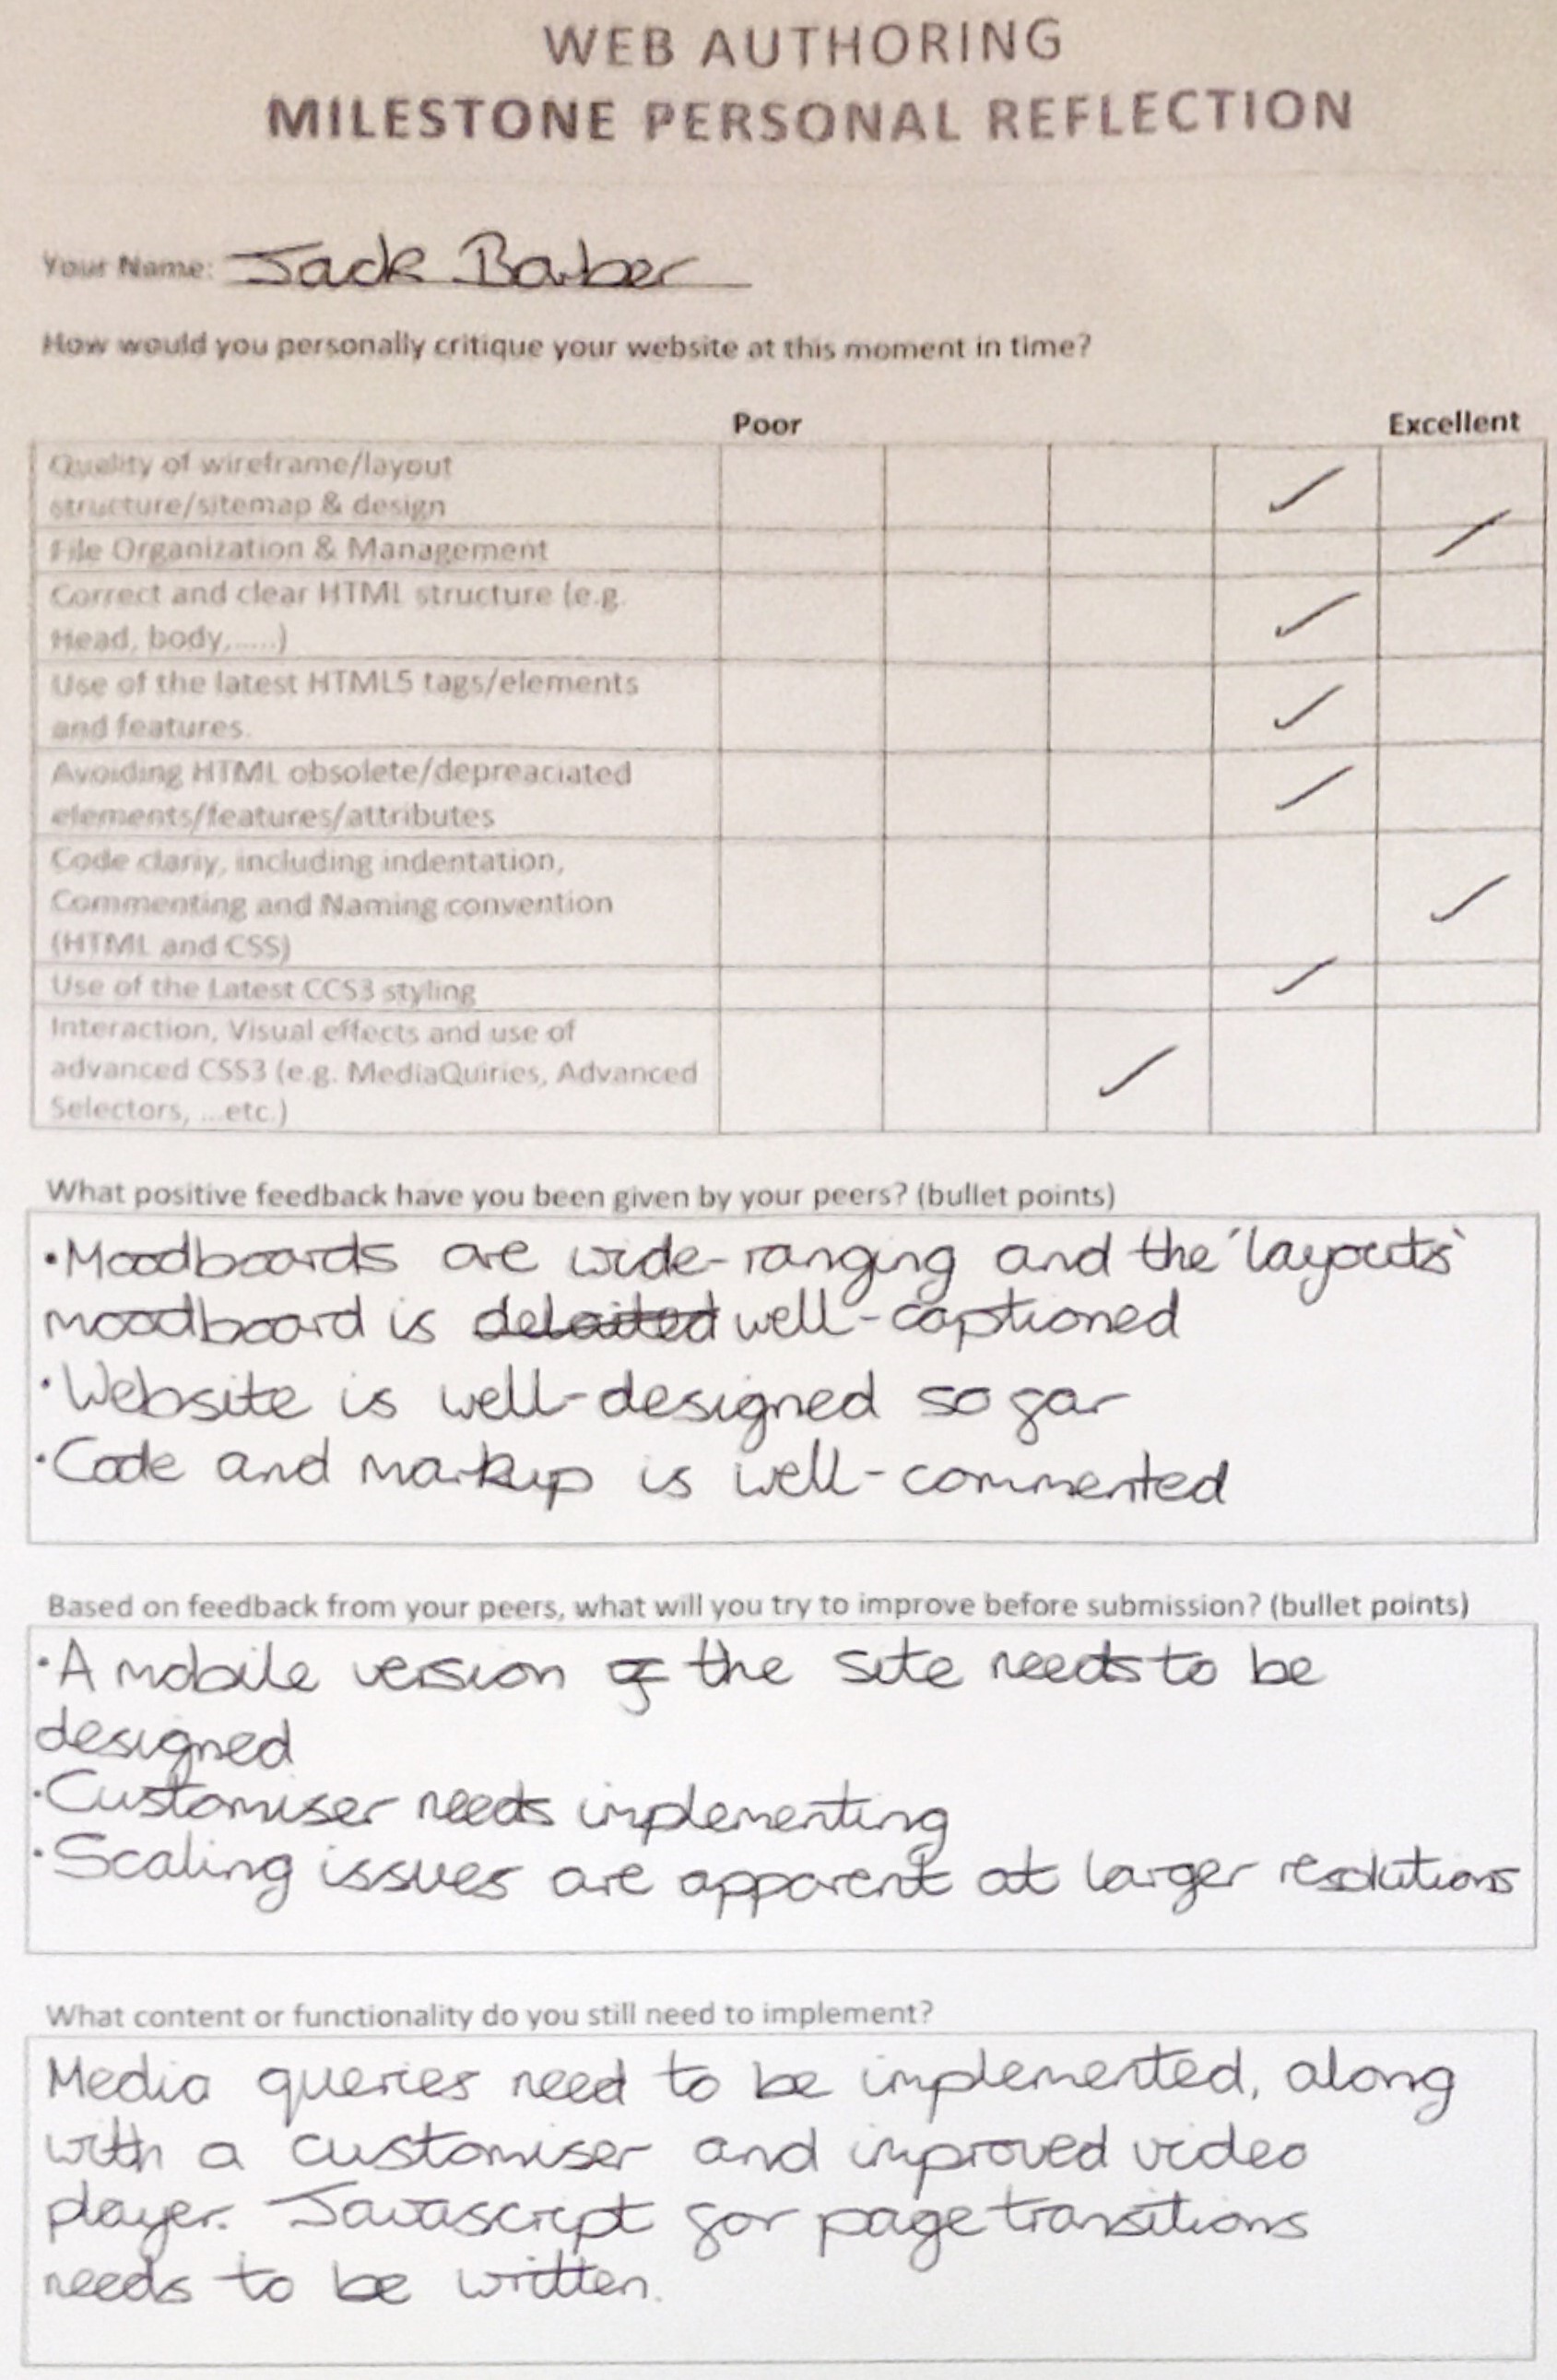 WEB AUTHORING
MILESTONE PERSONAL REFLECTION
Your Name: Jack Barber
How would you personally critique your website at this moment in time?
Poor Excellent
Quality of wireframe/layout
structure/sitemap & design ✓
File Organization & Management ✓
Correct and clear HTML structure (e.g.
Head, body,.....) ✓
Use of the latest HTML5 tags/elements
and features. ✓
Avoiding HTML obsolete/depreaciated
elements/features/attributes ✓
Code clariy, including indentation,
Commenting and Naming convention ✓
(HTML and CSS)
Use of the Latest CCS3 styling ✓
Interaction, Visual effects and use of
advanced CSS3 (e.g. MediaQuiries, Advanced ✓
Selectors, ...etc.)
What positive feedback have you been given by your peers? (bullet points)
•Moodboards are wide-ranging and the 'layouts'
moodboard is well-captioned
•Website is well-designed so far
•Code and markup is well-commented
Based on feedback from your peers, what will you try to improve before submission? (bullet points)
•A mobile version of the site needs to be
designed
•Customiser needs implementing
•Scaling issues are apparent at larger resolutions
What content or functionality do you still need to implement?
Media queries need to be implemented, along
with a customiser and improved video
player. Javascript for page transitions
needs to be written.